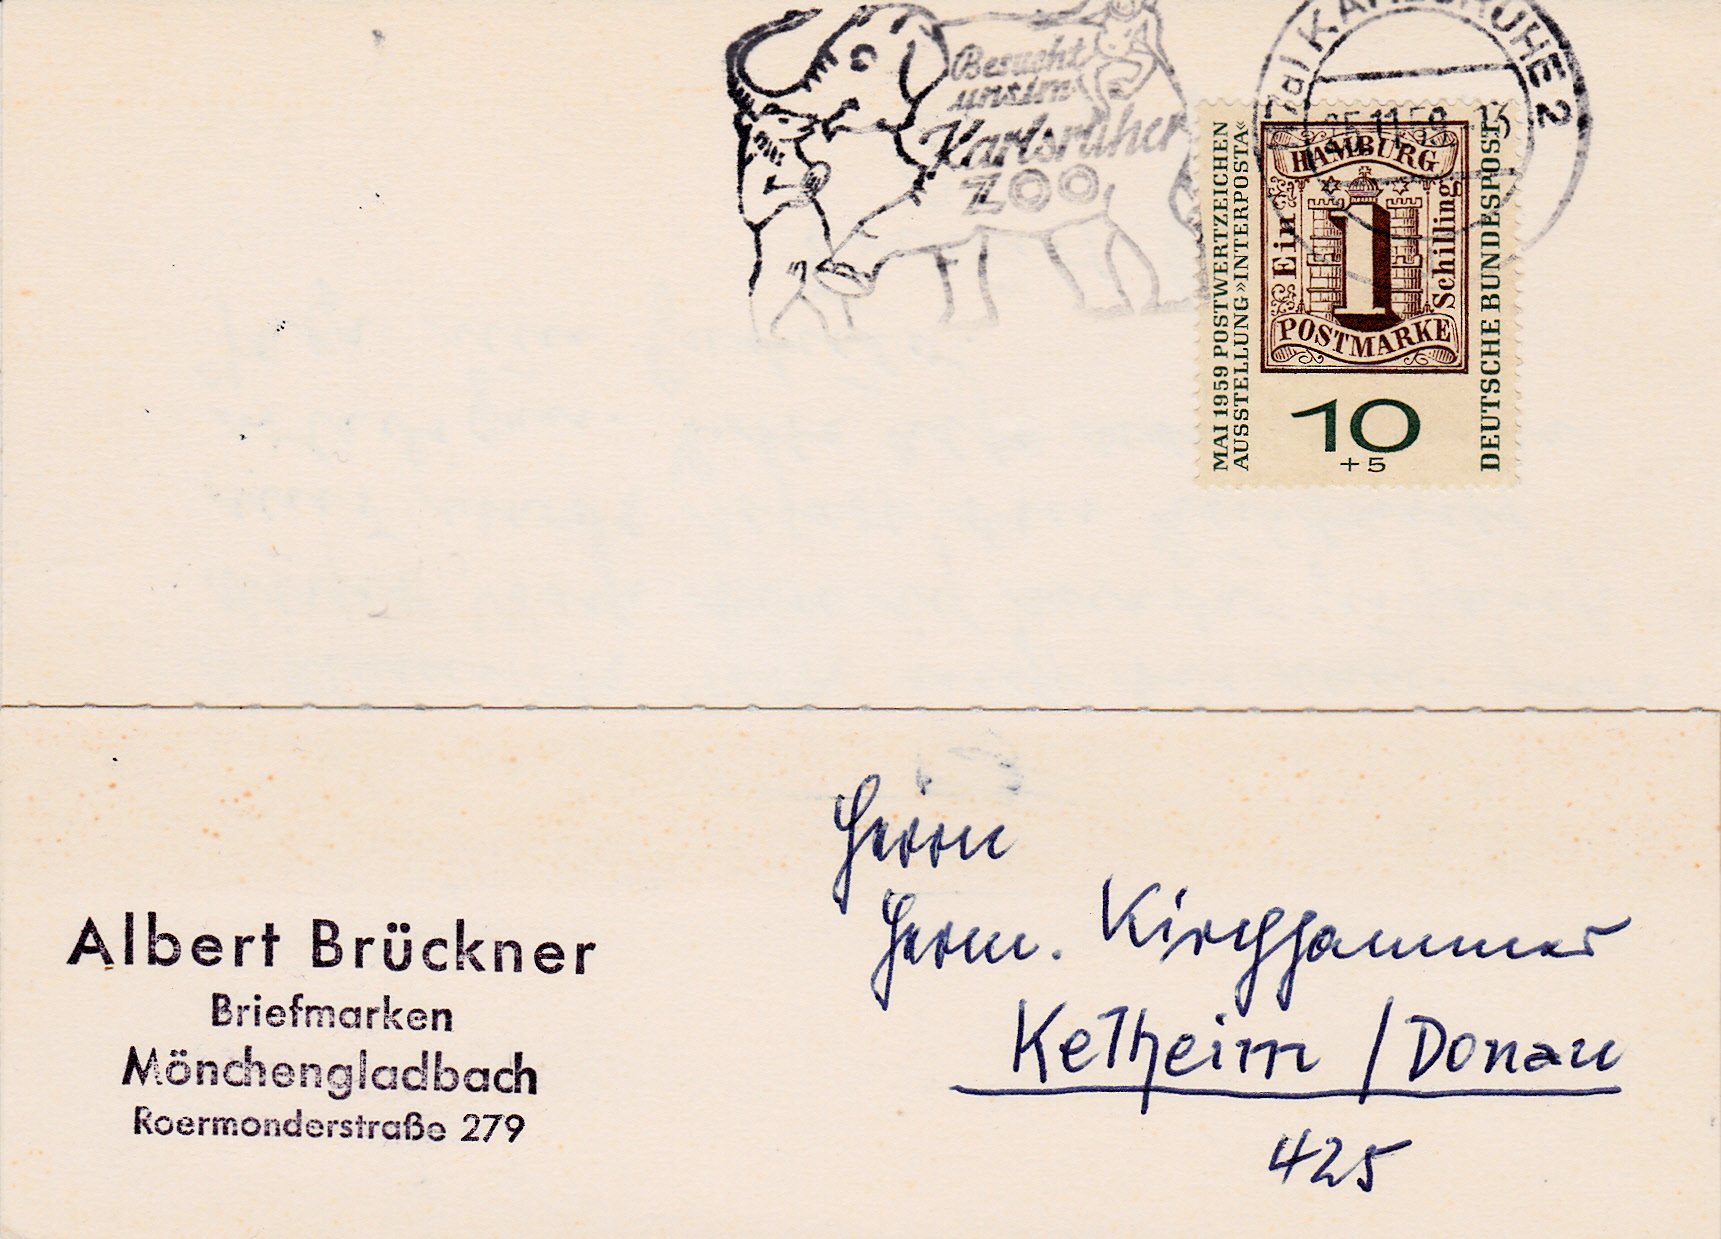 Besucht
uns im
Karlsruher
ZOO
KARLSRUHE 2
11.59-13
MAI 1959 POSTWERTZEICHEN
AUSSTELLUNG »INTERPOSTA«
HAMBURG
Ein
1
Schilling
POSTMARKE
10
+5
DEUTSCHE BUNDESPOST
Herrn
Herm. Kirchhammer
Kelheim / Donau
425
Albert Brückner
Briefmarken
Mönchengladbach
Roermonderstraße 279